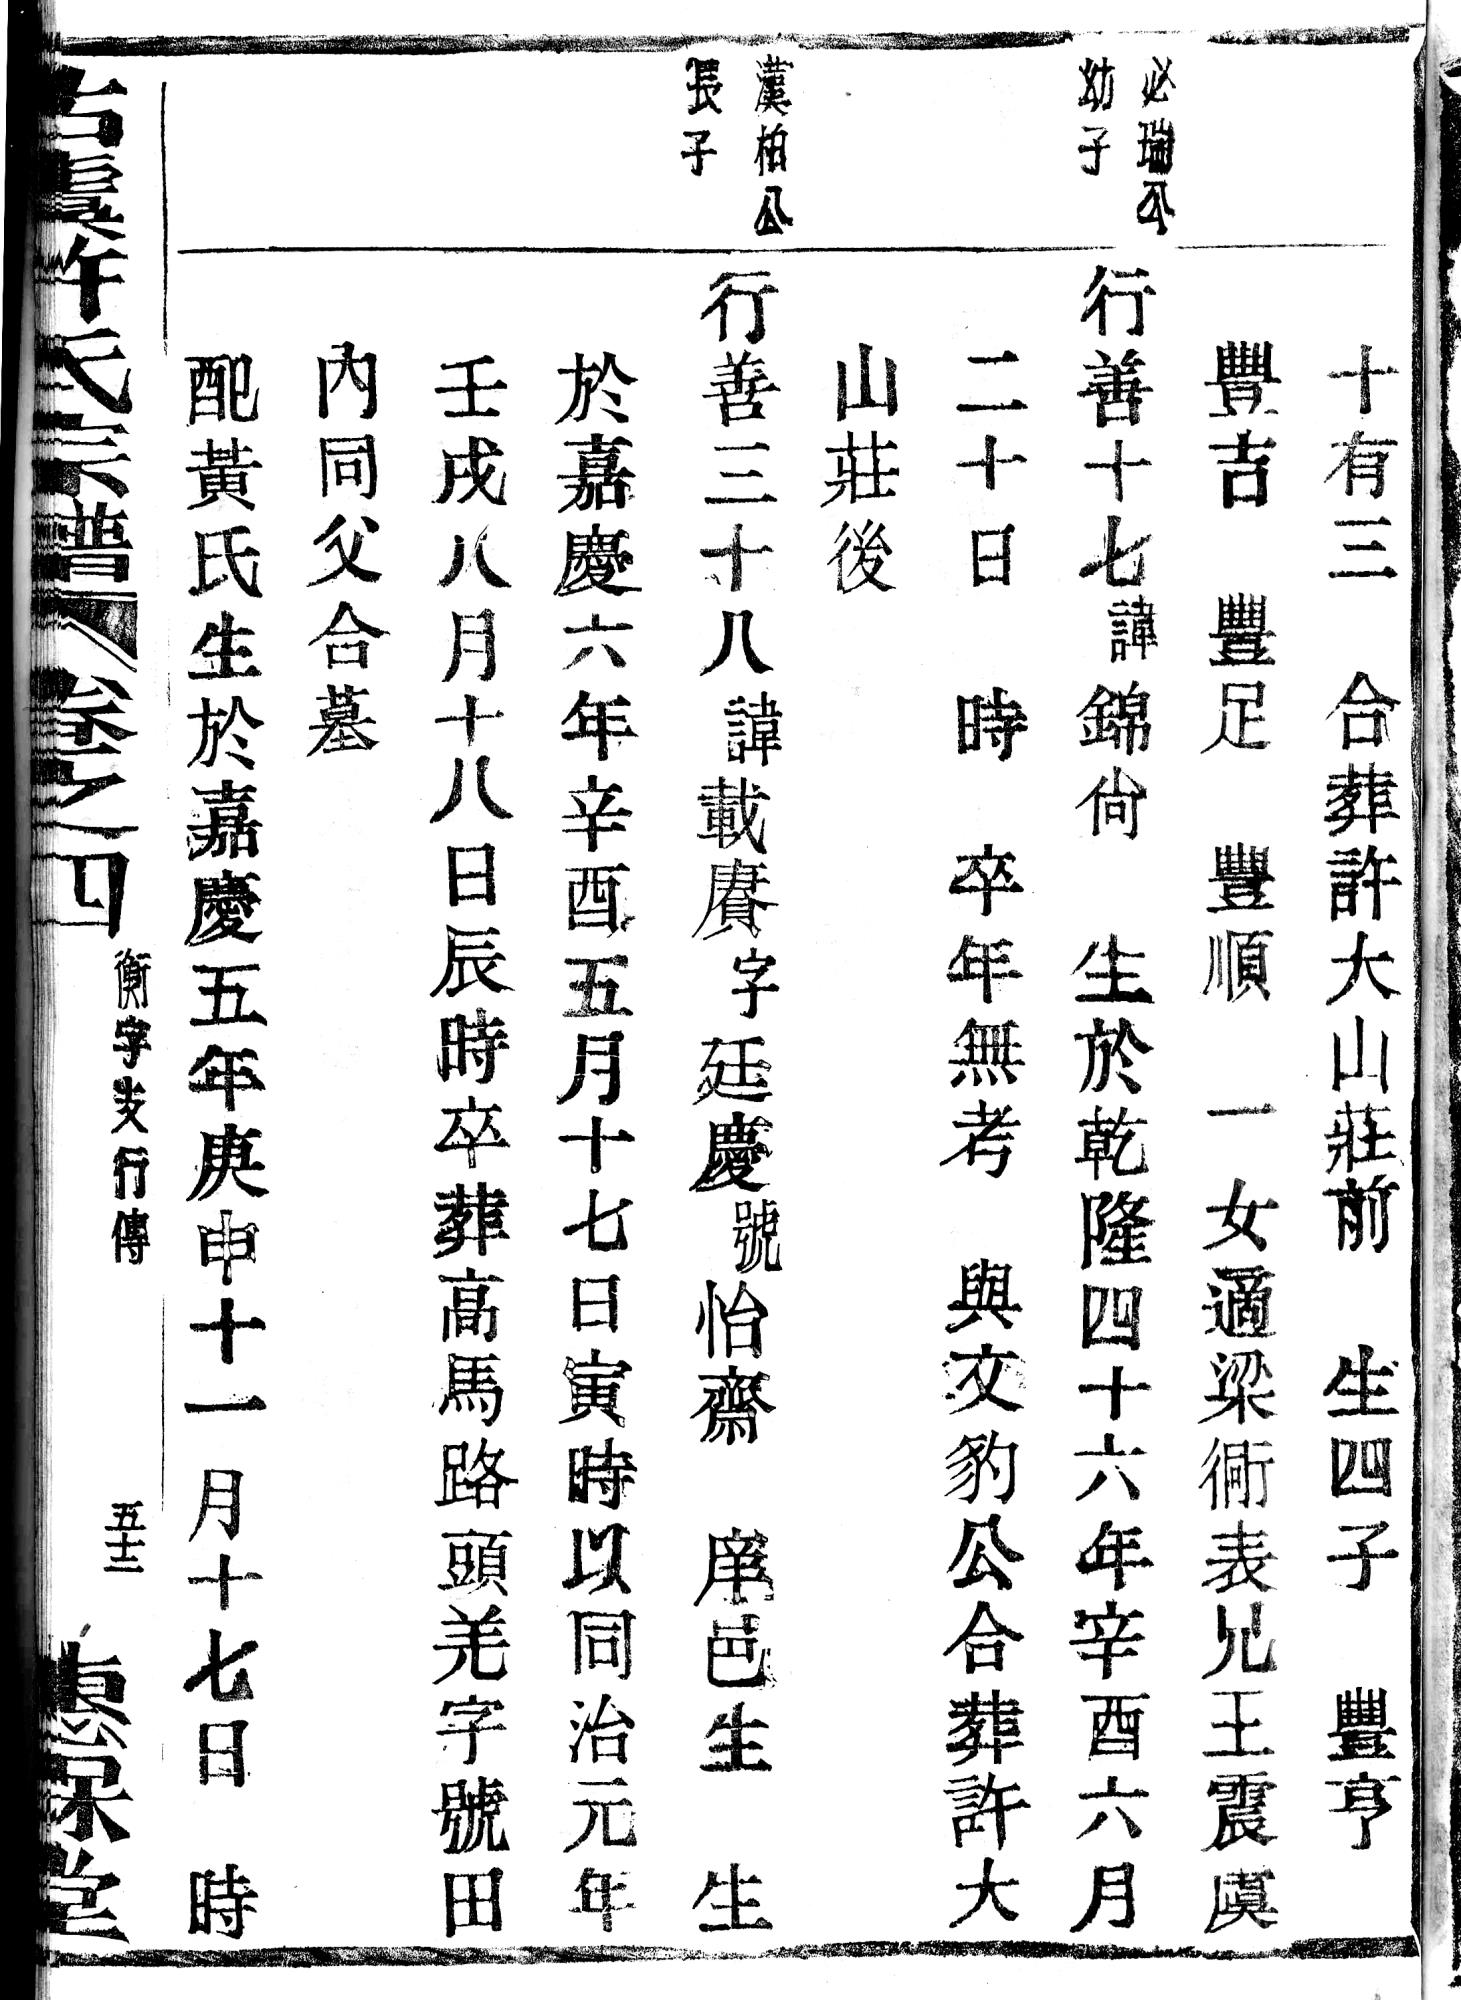 十有三　合葬許大山莊前　生四子　豐亨
豐吉　豐足　豐順　一女適梁衕表兄王震虞
必瑞公
幼子
行善十七諱錦尙　生於乾隆四十六年辛酉六月
二十日　時　卒年無考　與文豹公合葬許大
山莊後
漢柏公
長子
行善三十八諱載賡字廷慶號怡齋　庠邑生　生
於嘉慶六年辛酉五月十七日寅時以同治元年
壬戌八月十八日辰時卒葬高馬路頭羌字號田
內同父合墓
配黃氏生於嘉慶五年庚申十一月十七日　時
古虞許氏宗譜　卷之四　衡字支行傳　五十三　惠保堂